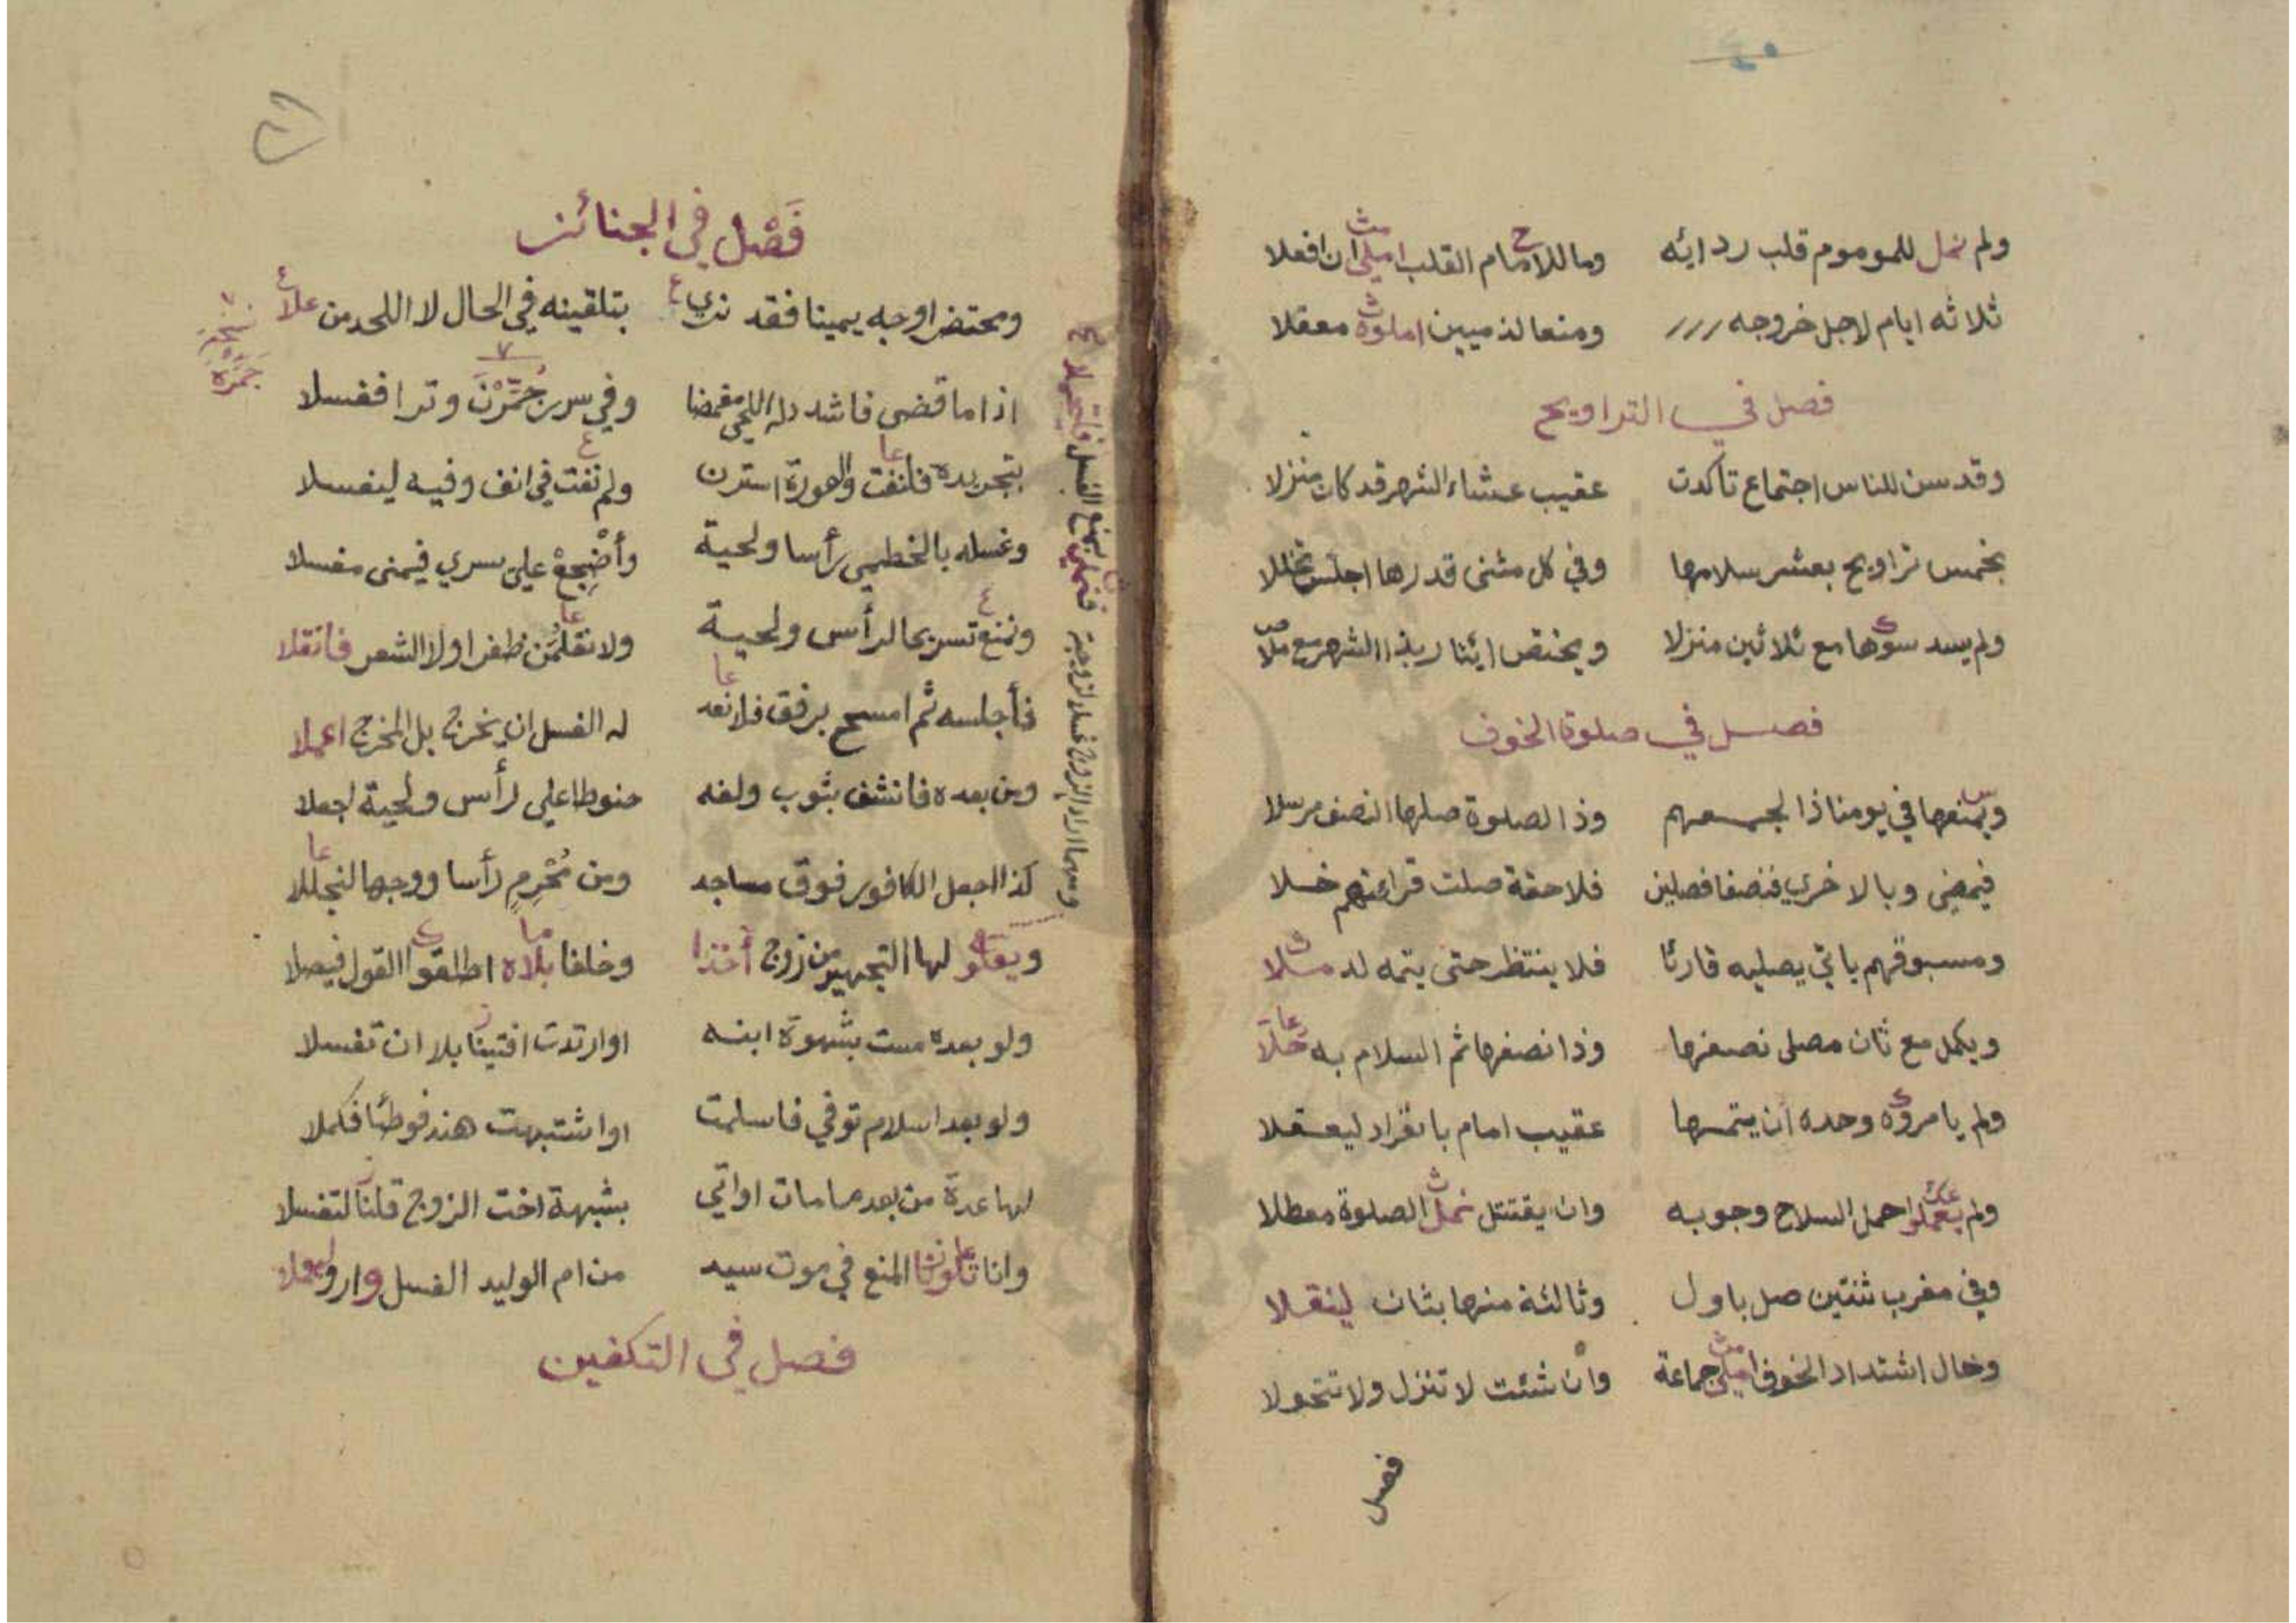 ولم نمل للموموم قلب ردائه وما للامام القلب امثلي ان افعلا
ثلاثه ايام لاجل خروجه ومنعا لذميين املوه معقلا
فصل في التراويح
وقد سن للناس اجتماع تأكدت عقيب عشاء الشهر قد كان منزلا
بخمس تراويح بعشر سلامها وفي كل مثنى قدرها اجلس تخللا
ولم يسد سوها مع ثلاثين منزلا ويختص ايثار بذا الشهر مع ملا
فصل في صلوة الخوف
ويمنعها في يومنا ذا لجمعهم وذا الصلوة صلها النصف مرسلا
فيمضي وبالاخري فنصفا فصلين فلاحقة صلت قراءتهم خلا
ومسبوقهم ياتي يصليه قارئا فلا ينتظر حتى يتمه لد مثلا
ويكمل مع ثان مصلى نصفها وذا نصفها ثم السلام به خلا
ولم يامروه وحده ان يتمها عقيب امام بانفراد ليعقلا
ولم يعملوا حمل السلاح وجوبه وان يقتتل نمل الصلوة معطلا
وفي مغرب ثنتين صل باول وثالثة منها بثان لينقلا
وحال اشتداد الخوف املي جماعة وان شئت لا تنزل ولا تتحولا
فصل
فَصْل في الجنائز
ومحتضر اوجه يمينا فقد ندي بتلقينه في الحال لا اللحد من علا
اذا ما قضى فاشدد له اللحي مغمضا وفي سرر جُمّرْنَ وترا فغسلا
بتجريده فانفت والعورة استرن ولم نفت في انف وفيه ليغسلا
وغسله بالخطمي رأسا ولحية وأضْجِعهْ على يسري فيمنى مغسلا
ونمنع تسريحا لرأس ولحية ولا نقلمُن ظفرا ولا الشعر فانقلا
فأجلسه ثم امسح برفق فلا نعد له الغسل ان يخرج بل المخرج اعملا
ومن بعده فانشف بثوب ولفه حنوطا على رأس ولحية اجعلا
كذا اجعل الكافور فوق مساجد ومن مُحْرِمٍ رأسا ووجها لنجللا
ويعلو لها التجهيز من زوج أخذا وخلفا بلاه اطلقوا القول فيصلا
ولو بعده مست بشهوة ابنه او ارتدت افتينا بلا ان تغسلا
ولو بعد اسلام توفي فاسلمت او اشتبهت هند فوطئا فكملا
لها عدة من بعدها مات او اتي بشبهة اخت الزوج قلنا لتغسلا
وانا تلونا المنع في موت سيد من ام الوليد الغسل وارو
فصل في التكفين
ومهما اراد الزوج غسلا لزوجة فنملي بمنع الغسل